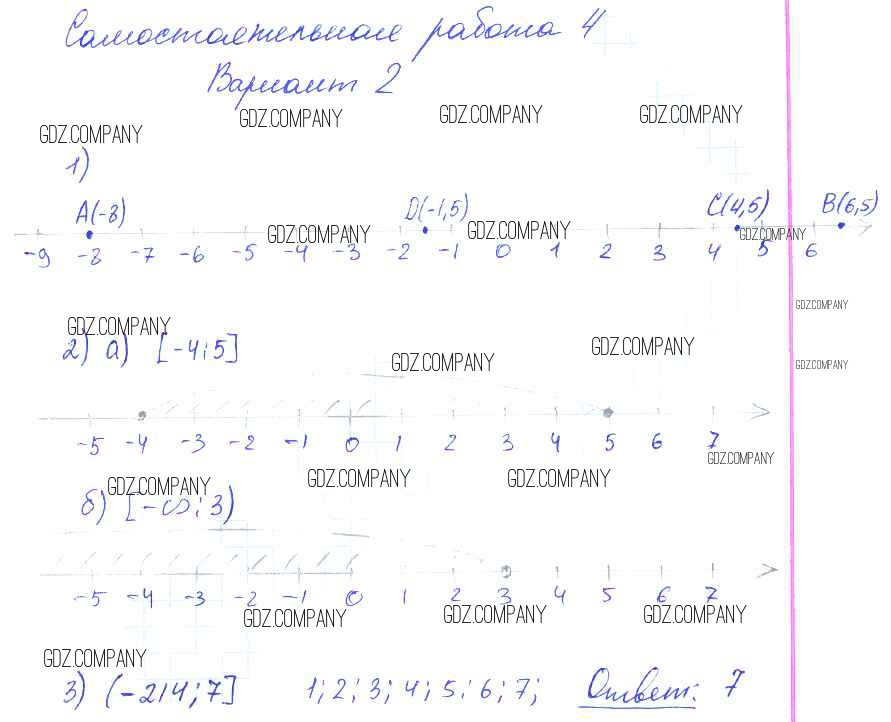 Самостоятельная работа 4
Вариант 2
GDZ.COMPANY GDZ.COMPANY GDZ.COMPANY GDZ.COMPANY
1)
A(-8) D(-1,5) C(4,5) B(6,5)
GDZ.COMPANY GDZ.COMPANY GDZ.COMPANY
-9 -8 -7 -6 -5 -4 -3 -2 -1 0 1 2 3 4 5 6
GDZ.COMPANY
GDZ.COMPANY
2) а) [-4;5]
GDZ.COMPANY GDZ.COMPANY GDZ.COMPANY
-5 -4 -3 -2 -1 0 1 2 3 4 5 6 7
GDZ.COMPANY
GDZ.COMPANY GDZ.COMPANY GDZ.COMPANY
б) [-∞;3)
-5 -4 -3 -2 -1 0 1 2 3 4 5 6 7
GDZ.COMPANY GDZ.COMPANY GDZ.COMPANY
GDZ.COMPANY
3) (-2,4;7] 1; 2; 3; 4; 5; 6; 7; Ответ: 7